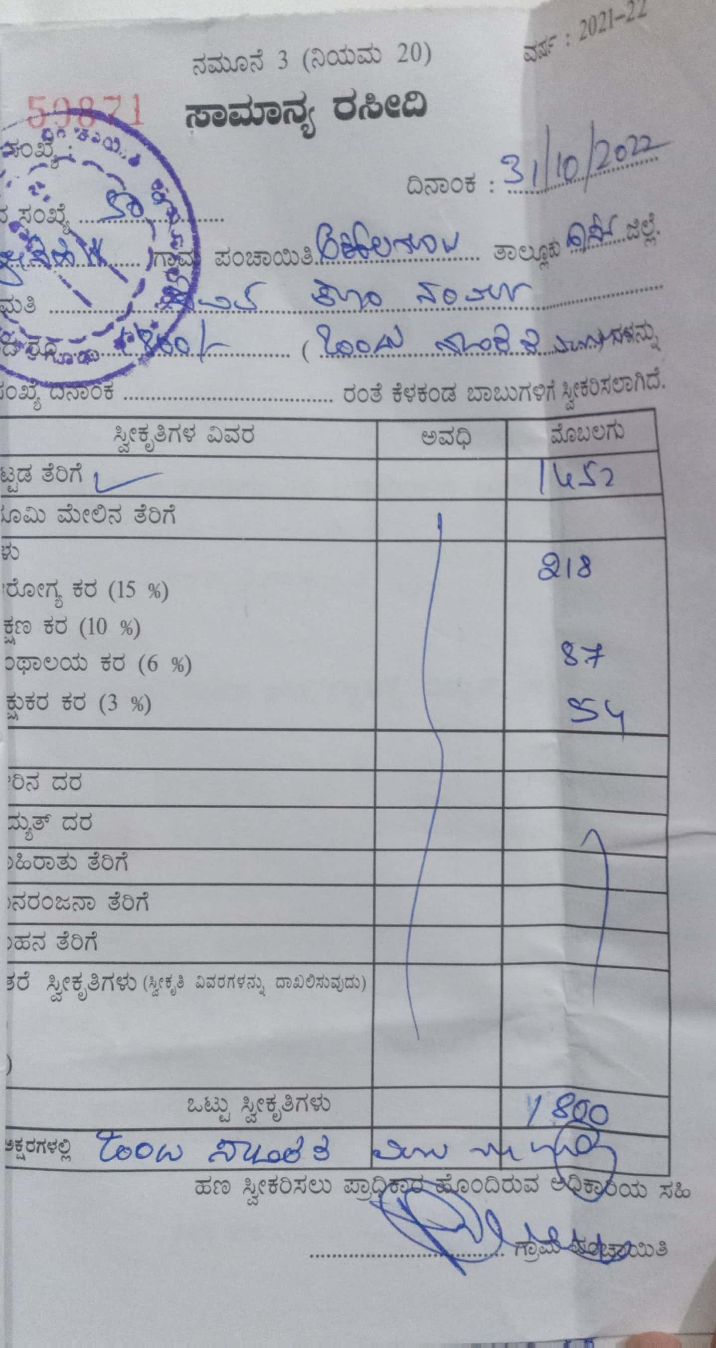 ವರ್ಷ : 2021-22
ನಮೂನೆ 3 (ನಿಯಮ 20)
59871 ಸಾಮಾನ್ಯ ರಸೀದಿ
ಸಂಖ್ಯೆ :
ದಿನಾಂಕ : 31/10/2022
ಸಂಖ್ಯೆ 50
ಗ್ರಾಮ ಪಂಚಾಯಿತಿ ತಾಲ್ಲೂಕು ಜಿಲ್ಲೆ.
ಮತಿ
1800/- ( ಒಂದು ಸಾವಿರದ
ಸಂಖ್ಯೆ ದಿನಾಂಕ ರಂತೆ ಕೆಳಕಂಡ ಬಾಬುಗಳಿಗೆ ಸ್ವೀಕರಿಸಲಾಗಿದೆ.
ಸ್ವೀಕೃತಿಗಳ ವಿವರ ಅವಧಿ ಮೊಬಲಗು
ಟ್ಟಡ ತೆರಿಗೆ 1452
ೂಮಿ ಮೇಲಿನ ತೆರಿಗೆ
ಳು 218
ರೋಗ್ಯ ಕರ (15 %)
ಕ್ಷಣ ಕರ (10 %)
ಂಥಾಲಯ ಕರ (6 %) 87
ಕ್ಷುಕರ ಕರ (3 %) 54
ರಿನ ದರ
ದ್ಯುತ್ ದರ
ಾಹಿರಾತು ತೆರಿಗೆ
ನರಂಜನಾ ತೆರಿಗೆ
ಾಹನ ತೆರಿಗೆ
ತರೆ ಸ್ವೀಕೃತಿಗಳು (ಸ್ವೀಕೃತಿ ವಿವರಗಳನ್ನು ದಾಖಲಿಸುವುದು)
)
ಒಟ್ಟು ಸ್ವೀಕೃತಿಗಳು 1800
ಅಕ್ಷರಗಳಲ್ಲಿ ಒಂದು ಸಾವಿರದ
ಹಣ ಸ್ವೀಕರಿಸಲು ಪ್ರಾಧಿಕಾರ ಹೊಂದಿರುವ ಅಧಿಕಾರಿಯ ಸಹಿ
ಗ್ರಾಮ ಪಂಚಾಯಿತಿ